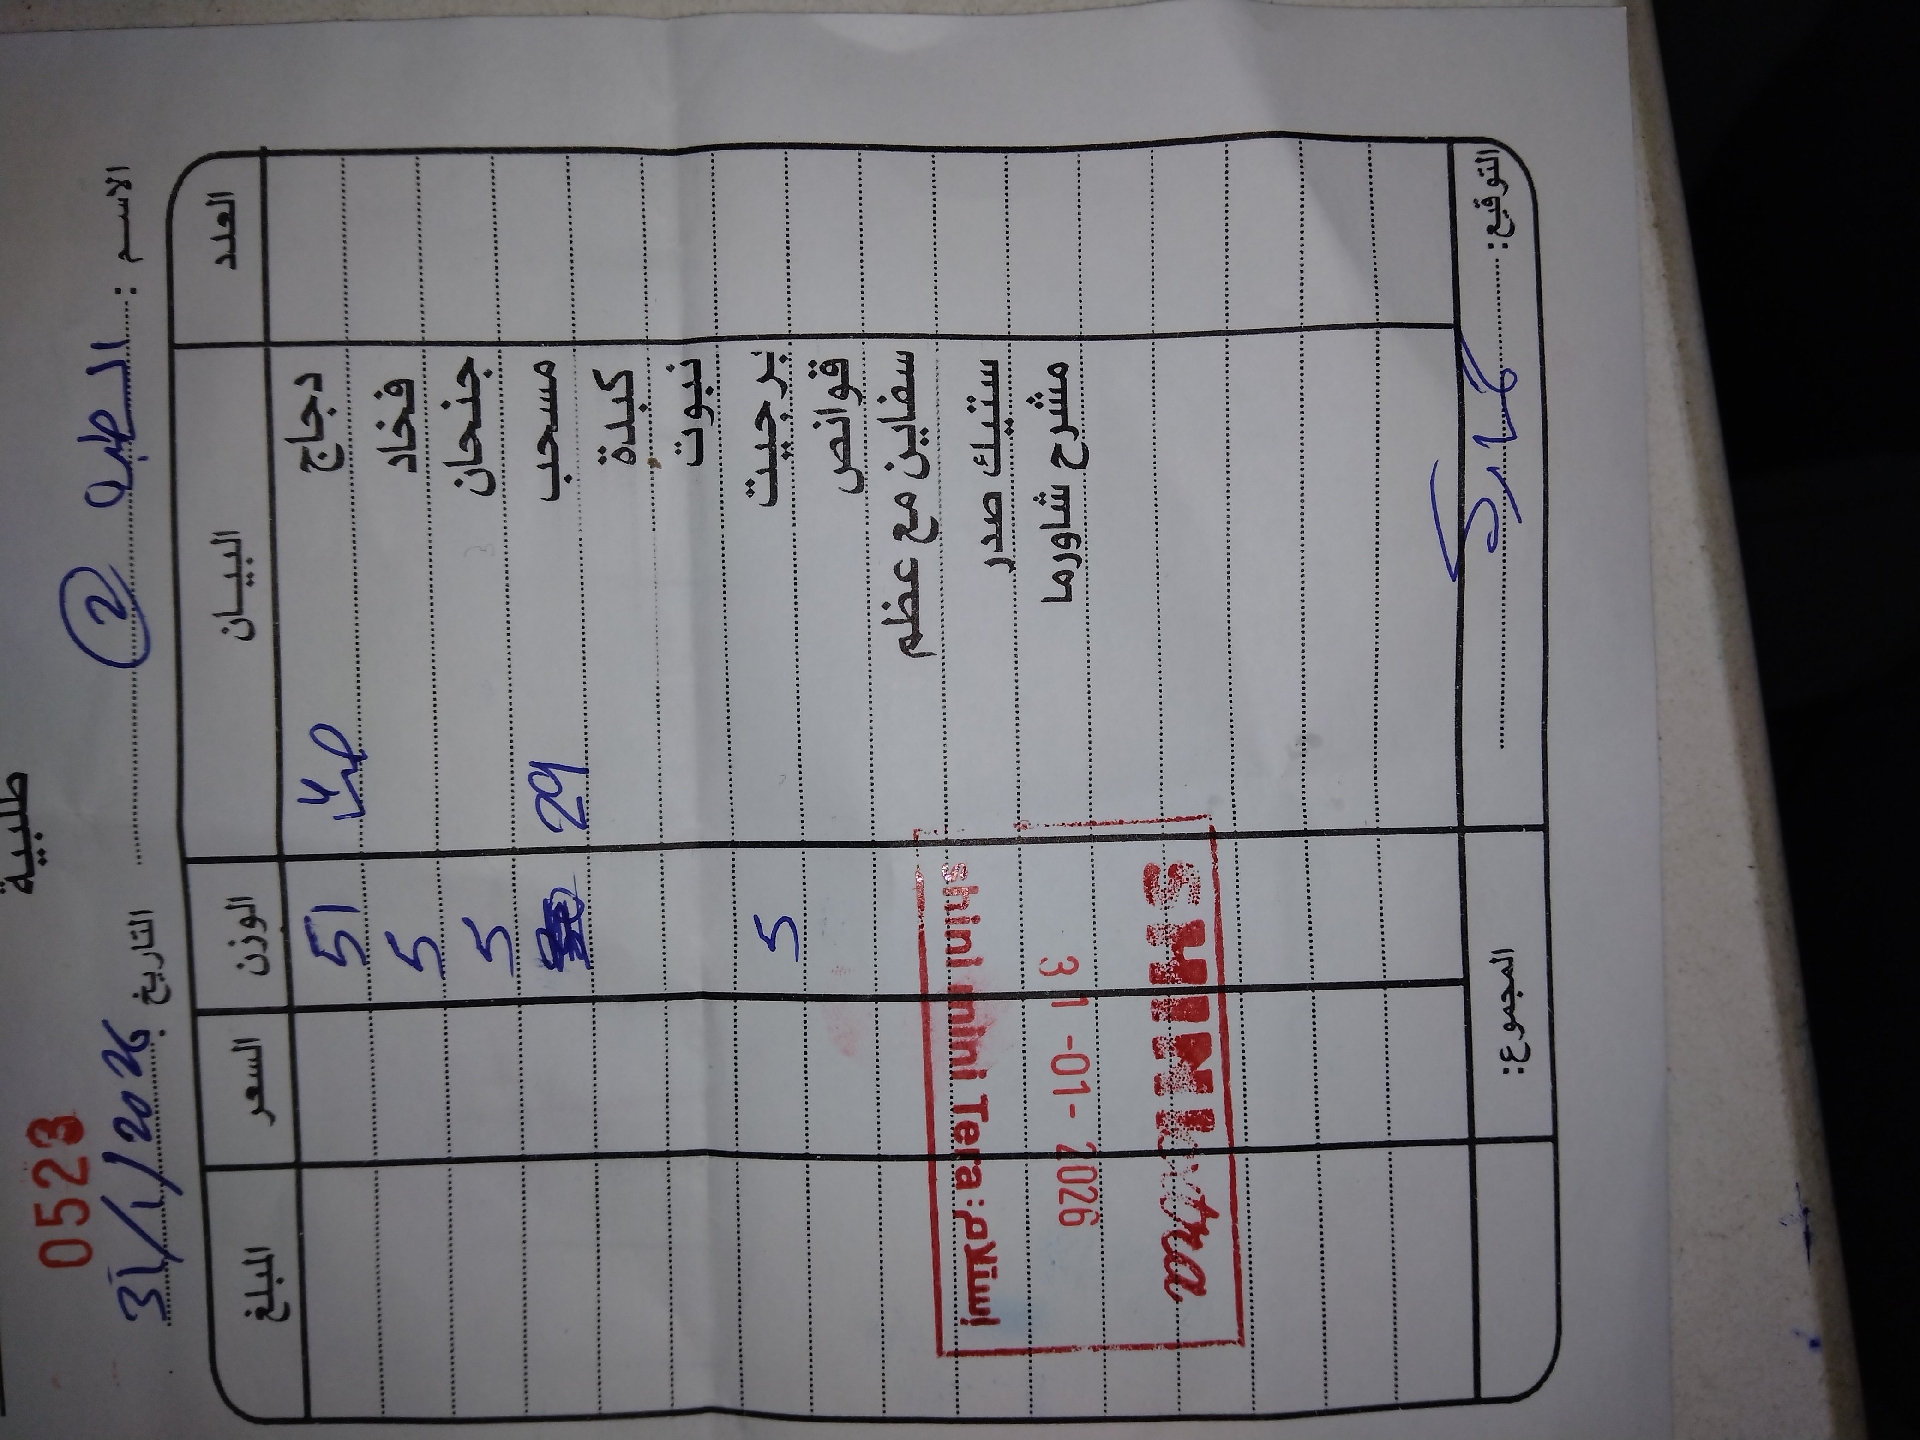 طلبية
0523
الاسم : الطيبه ②
التاريخ 31/1/2026
العدد البيان الوزن السعر المبلغ
دجاج 51
فخاد 5
جنحان 5
مسحب 29
كبدة
نبوت
برجيت 5
قوانص
سفاين مع عظم
ستيك صدر
مشرح شاورما
shini mini Tera : إستلام
31-01-2026
SHINI
التوقيع:
المجموع: